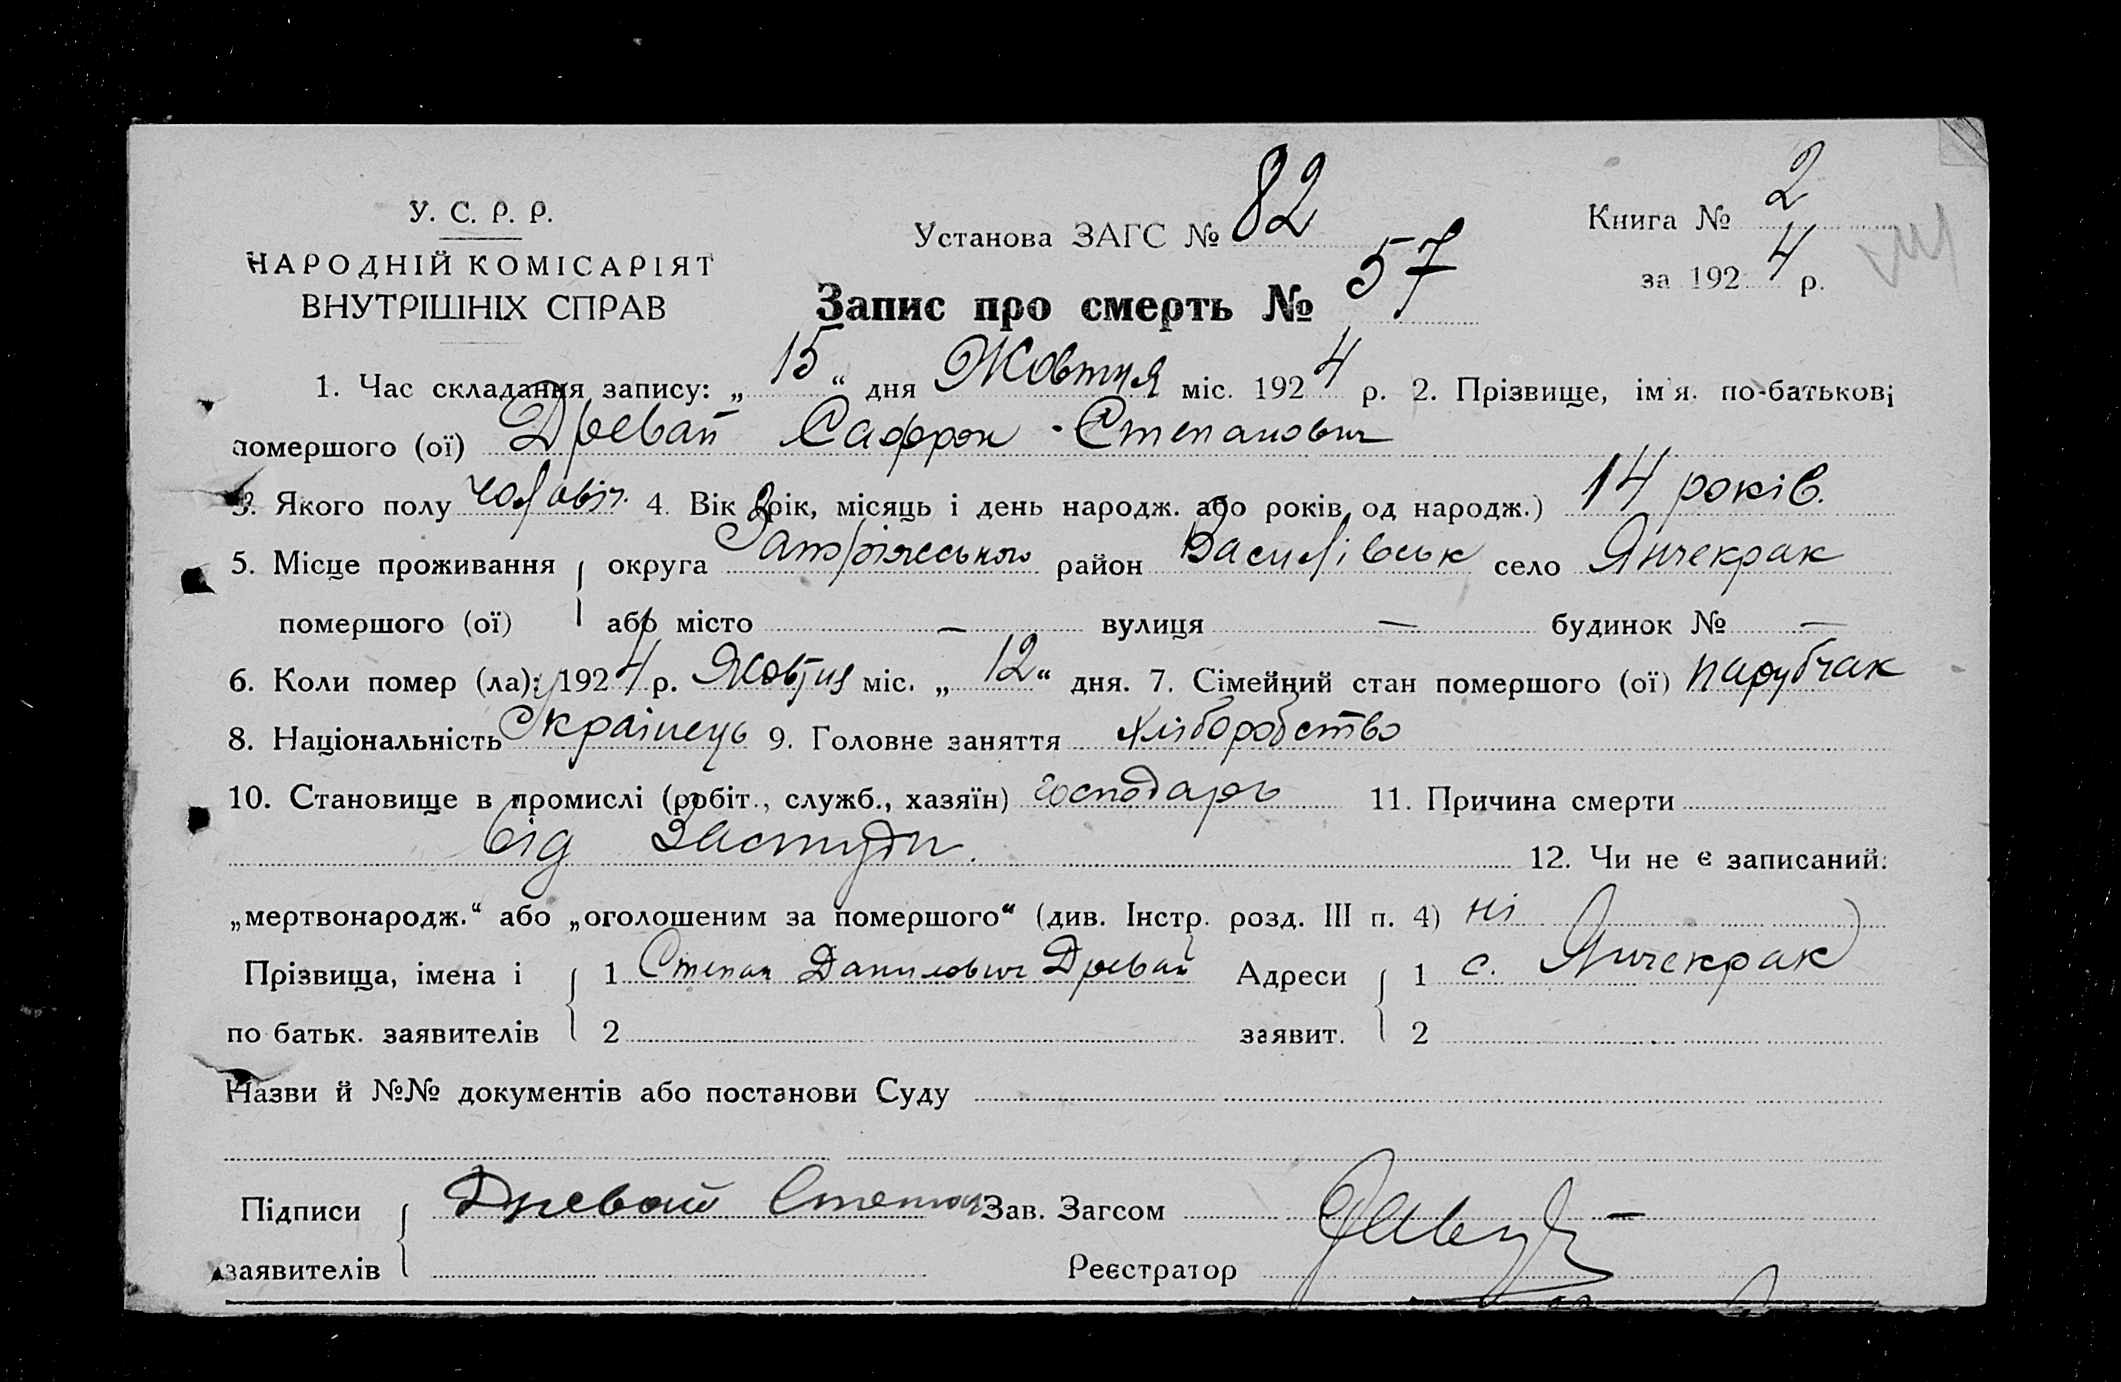 У. С. Р. Р.
НАРОДНІЙ КОМІСАРІЯТ
ВНУТРІШНІХ СПРАВ
Установа ЗАГС № 82
Книга № 2
за 1924 р.
Запис про смерть № 57
1. Час складання запису: „15“ дня Жовтня міс. 1924 р. 2. Прізвище, ім'я. по-батькові
помершого (ої) Древай Сафрон Степанович
3. Якого полу чоловіч. 4. Вік (рік, місяць і день народж. або років од народж.) 14 років.
5. Місце проживання округа район Василівськ село Янчекрак
помершого (ої) або місто — вулиця — будинок № —
6. Коли помер (ла): 1924 р. Жовтня міс. „12“ дня. 7. Сімейний стан помершого (ої) парубчак
8. Національність Українець 9. Головне заняття хліборобство
10. Становище в промислі (робіт., служб., хазяїн) господарь 11. Причина смерти
від застуди. 12. Чи не є записаний:
„мертвонародж.“ або „оголошеним за помершого“ (див. Інстр. розд. III п. 4) ні
Прізвища, імена і 1 Степан Данилович Древай Адреси 1 с. Янчекрак
по батьк. заявителів 2 заявит. 2
Назви й №№ документів або постанови Суду
Підписи Древай Степан Зав. Загсом
заявителів Реєстратор